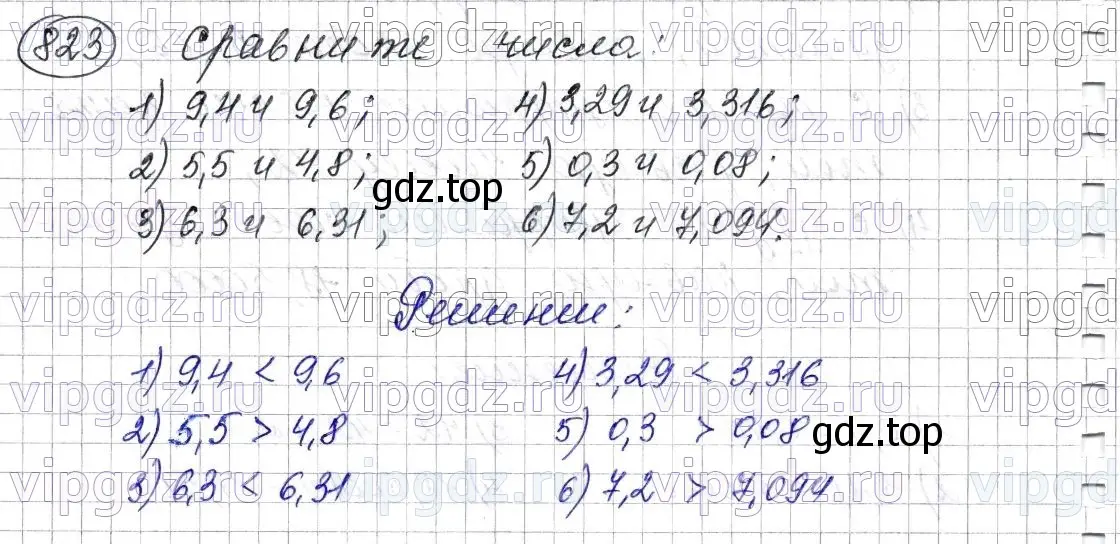 823 Сравните числа:
1) 9,4 и 9,6; 4) 3,29 и 3,316;
2) 5,5 и 4,8; 5) 0,3 и 0,08;
3) 6,3 и 6,31; 6) 7,2 и 7,094.
gdz.top
Решение:
1) 9,4 < 9,6 4) 3,29 < 3,316
2) 5,5 > 4,8 5) 0,3 > 0,08
gdz.top
3) 6,3 < 6,31 6) 7,2 > 7,094
vipgdz.ru